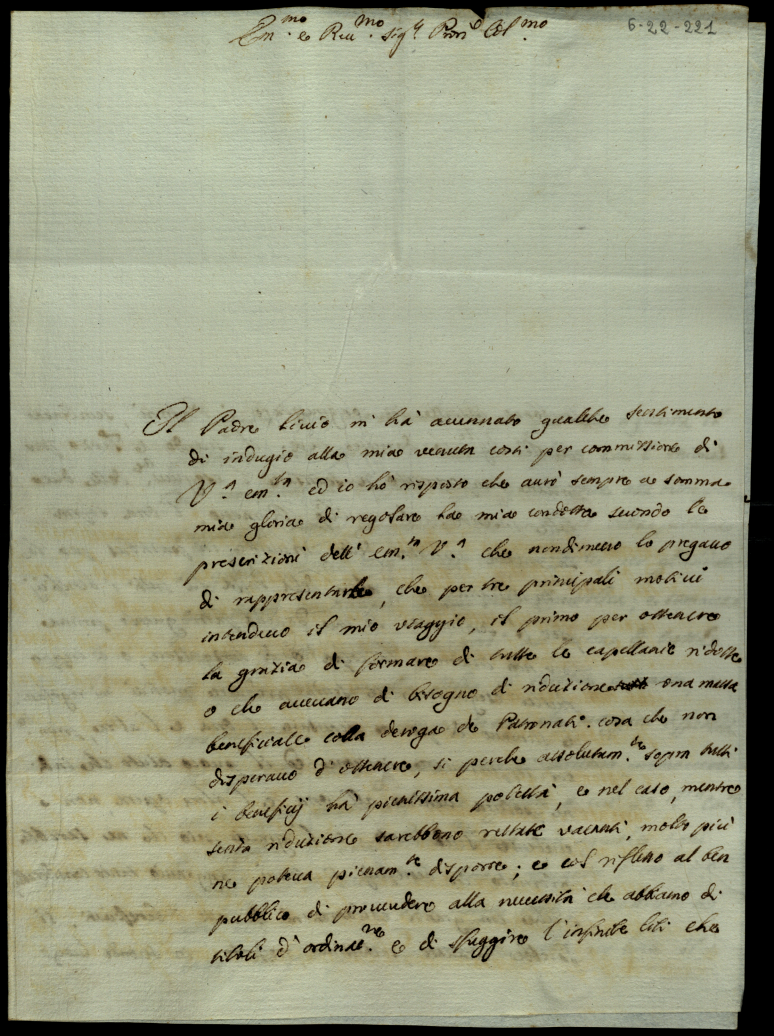 6-22-221
Em.mo e Rev.mo Sig.r Pron.e Col.mo
Il Padre Livio m'hà accennato qualche sentimento
di indugio alla mia venuta costì per commissione di
V.a em.za ed io hò risposto che avrò sempre a somma
mia gloria di regolare la mia condotta secondo le
prescrizioni dell'em.za V.a che nondimeno lo pregavo
di rappresentarle, che per tre principali motivi
intendevo il mio viaggio, il primo per ottenere
la grazia di formare di tutte le capellanie ridotte
o che avevano di bisogno di riduzione una massa
beneficiale colla deroga de Patronati. cosa che non
disperavo d'ottenere, si perche assolutam.te sopra tutti
i beneficij hà pienissima potestà, e nel caso, mentre
senza riduzione sarebbono restate vacanti, molto più
ne poteva pienam.te disporre; e col riflesso al ben
pubblico di provvedere alla necessità che abbiamo di
titoli d'ordinaz.ne e di sfuggire l'infinite liti che